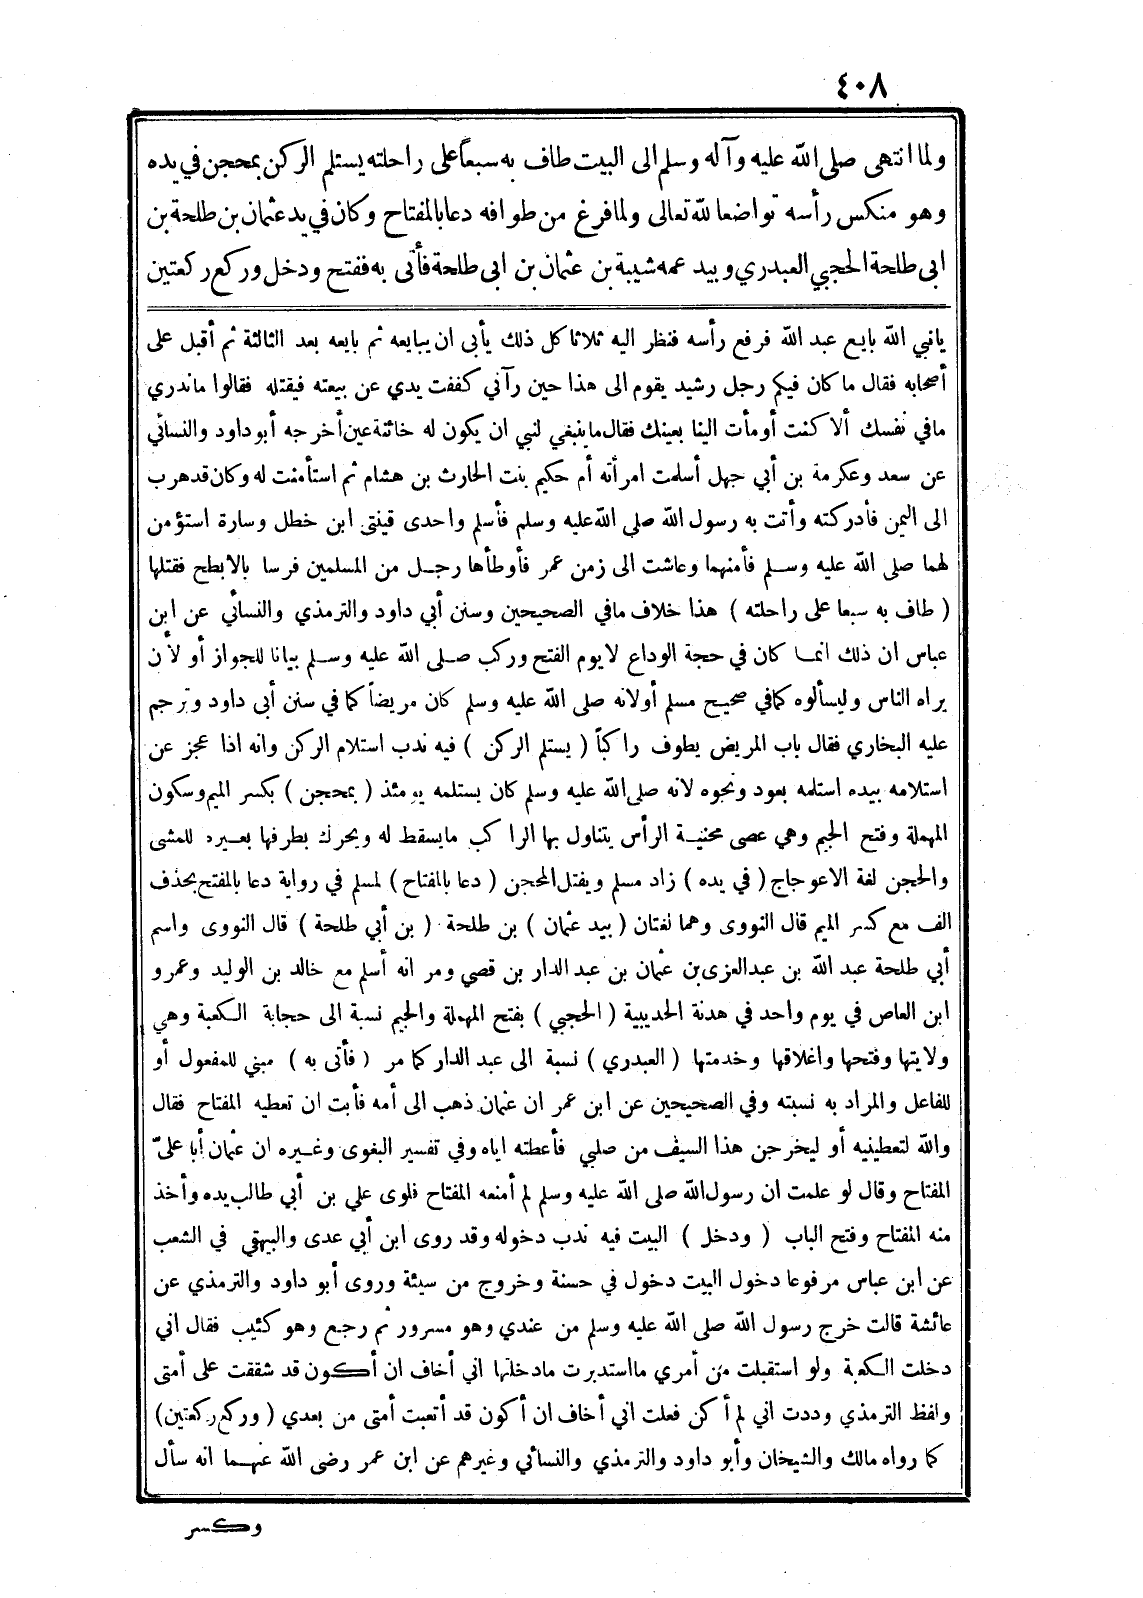 ٤٠٨
ولما انتهى صلى الله عليه وآله وسلم الى البيت طاف به سبعاً على راحلته يستلم الركن بمحجن في يده
وهو منكس رأسه تواضعا لله تعالى ولما فرغ من طوافه دعا بالمفتاح وكان في يد عثمان بن طلحة بن
ابى طلحة الحجبي العبدري وبيد عمه شيبة بن عثمان بن ابى طلحة فأتى به ففتح ودخل وركع ركعتين
يانبي الله بايع عبد الله فرفع رأسه فنظر اليه ثلاثا كل ذلك يأبى ان يبايعه ثم بايعه بعد الثالثة ثم أقبل على
أصحابه فقال ما كان فيكم رجل رشيد يقوم الى هذا حين رآني كففت يدي عن بيعته فيقتله فقالوا ماندري
مافي نفسك ألا كنت أومأت الينا بعينك فقال ماينبغي لنبي ان يكون له خائنة عين أخرجه أبو داود والنسائي
عن سعد وعكرمة بن أبي جهل أسلمت امرأته أم حكيم بنت الحارث بن هشام ثم استأمنت له وكان قد هرب
الى اليمن فأدركته وأتت به رسول الله صلى الله عليه وسلم فأسلم واحدى قينتى ابن خطل وسارة استؤمن
لهما صلى الله عليه وسلم فأمنهما وعاشت الى زمن عمر فأوطأها رجل من المسلمين فرسا بالابطح فقتلها
( طاف به سبعا على راحلته ) هذا خلاف مافي الصحيحين وسنن أبي داود والترمذي والنسائي عن ابن
عباس ان ذلك انما كان في حجة الوداع لا يوم الفتح وركب صلى الله عليه وسلم بيانا للجواز أو لأن
يراه الناس وليسألوه كما في صحيح مسلم أو لانه صلى الله عليه وسلم كان مريضاً كما في سنن أبى داود وترجم
عليه البخاري فقال باب المريض يطوف راكباً ( يستلم الركن ) فيه ندب استلام الركن وانه اذا عجز عن
استلامه بيده استلمه بعود ونحوه لانه صلى الله عليه وسلم كان يستلمه يومئذ ( بمحجن ) بكسر الميم وسكون
المهملة وفتح الجيم وهي عصى محنية الرأس يتناول بها الراكب مايسقط له ويحرك بطرفها بعيره للمشى
والحجن لغة الاعوجاج ( في يده ) زاد مسلم ويقبل المحجن ( دعا بالمفتاح ) لمسلم في رواية دعا بالمفتح بحذف
الف مع كسر الميم قال النووى وهما لغتان ( بيد عثمان ) بن طلحة ( بن أبي طلحة ) قال النووى واسم
أبي طلحة عبد الله بن عبد العزى بن عثمان بن عبد الدار بن قصي ومر انه أسلم مع خالد بن الوليد وعمرو
ابن العاص في يوم واحد في هدنة الحديبية ( الحجبي ) بفتح المهملة والجيم نسبة الى حجابة الكعبة وهي
ولايتها وفتحها واغلاقها وخدمتها ( العبدري ) نسبة الى عبد الدار كما مر ( فأتى به ) مبني للمفعول أو
للفاعل والمراد به نسبته وفي الصحيحين عن ابن عمر ان عثمان ذهب الى أمه فأبت ان تعطيه المفتاح فقال
والله لتعطينيه أو ليخرجن هذا السيف من صلبي فأعطته اياه وفي تفسير البغوى وغيره ان عثمان أبا علىّ
المفتاح وقال لو علمت ان رسول الله صلى الله عليه وسلم لم أمنعه المفتاح فلوى علي بن أبي طالب يده وأخذ
منه المفتاح وفتح الباب ( ودخل ) البيت فيه ندب دخوله وقد روى ابن أبي عدى والبيهقي في الشعب
عن ابن عباس مرفوعا دخول البيت دخول في حسنة وخروج من سيئة وروى أبو داود والترمذي عن
عائشة قالت خرج رسول الله صلى الله عليه وسلم من عندي وهو مسرور ثم رجع وهو كئيب فقال اني
دخلت الكعبة ولو استقبلت من أمري مااستدبرت مادخلتها اني أخاف ان أكون قد شققت على أمتى
ولفظ الترمذي وددت اني لم أكن فعلت اني أخاف ان أكون قد أتعبت أمتى من بعدي ( وركع ركعتين )
كما رواه مالك والشيخان وأبو داود والترمذي والنسائي وغيرهم عن ابن عمر رضى الله عنهما انه سأل
وكسر